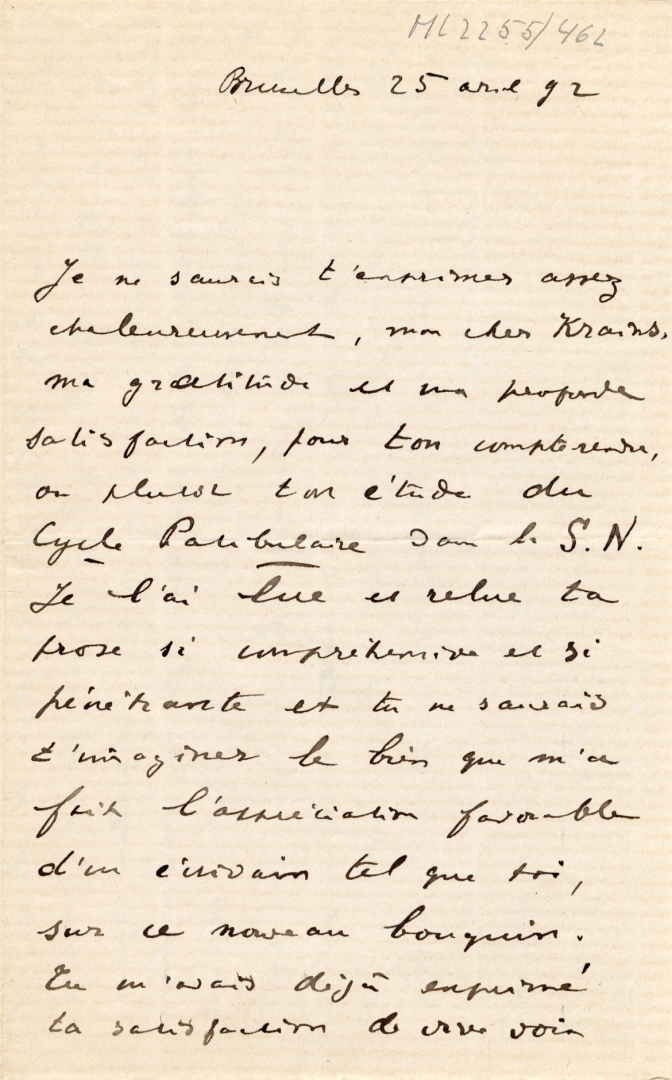 ML 2255/462
Bruxelles 25 avril 92
Je ne saurais t'exprimer assez
chaleureusement, mon cher Krains,
ma gratitude et ma profonde
satisfaction, pour ton compte rendu,
ou plutôt ton étude du
Cycle Patibulaire dans la S.N.
Je l'ai lue et relue ta
prose si compréhensive et si
pénétrante et tu ne saurais
t'imaginer le bien que m'a
fait l'appréciation favorable
d'un écrivain tel que toi,
sur ce nouveau bouquin.
Tu m'avais déjà exprimé
ta satisfaction de vive voix